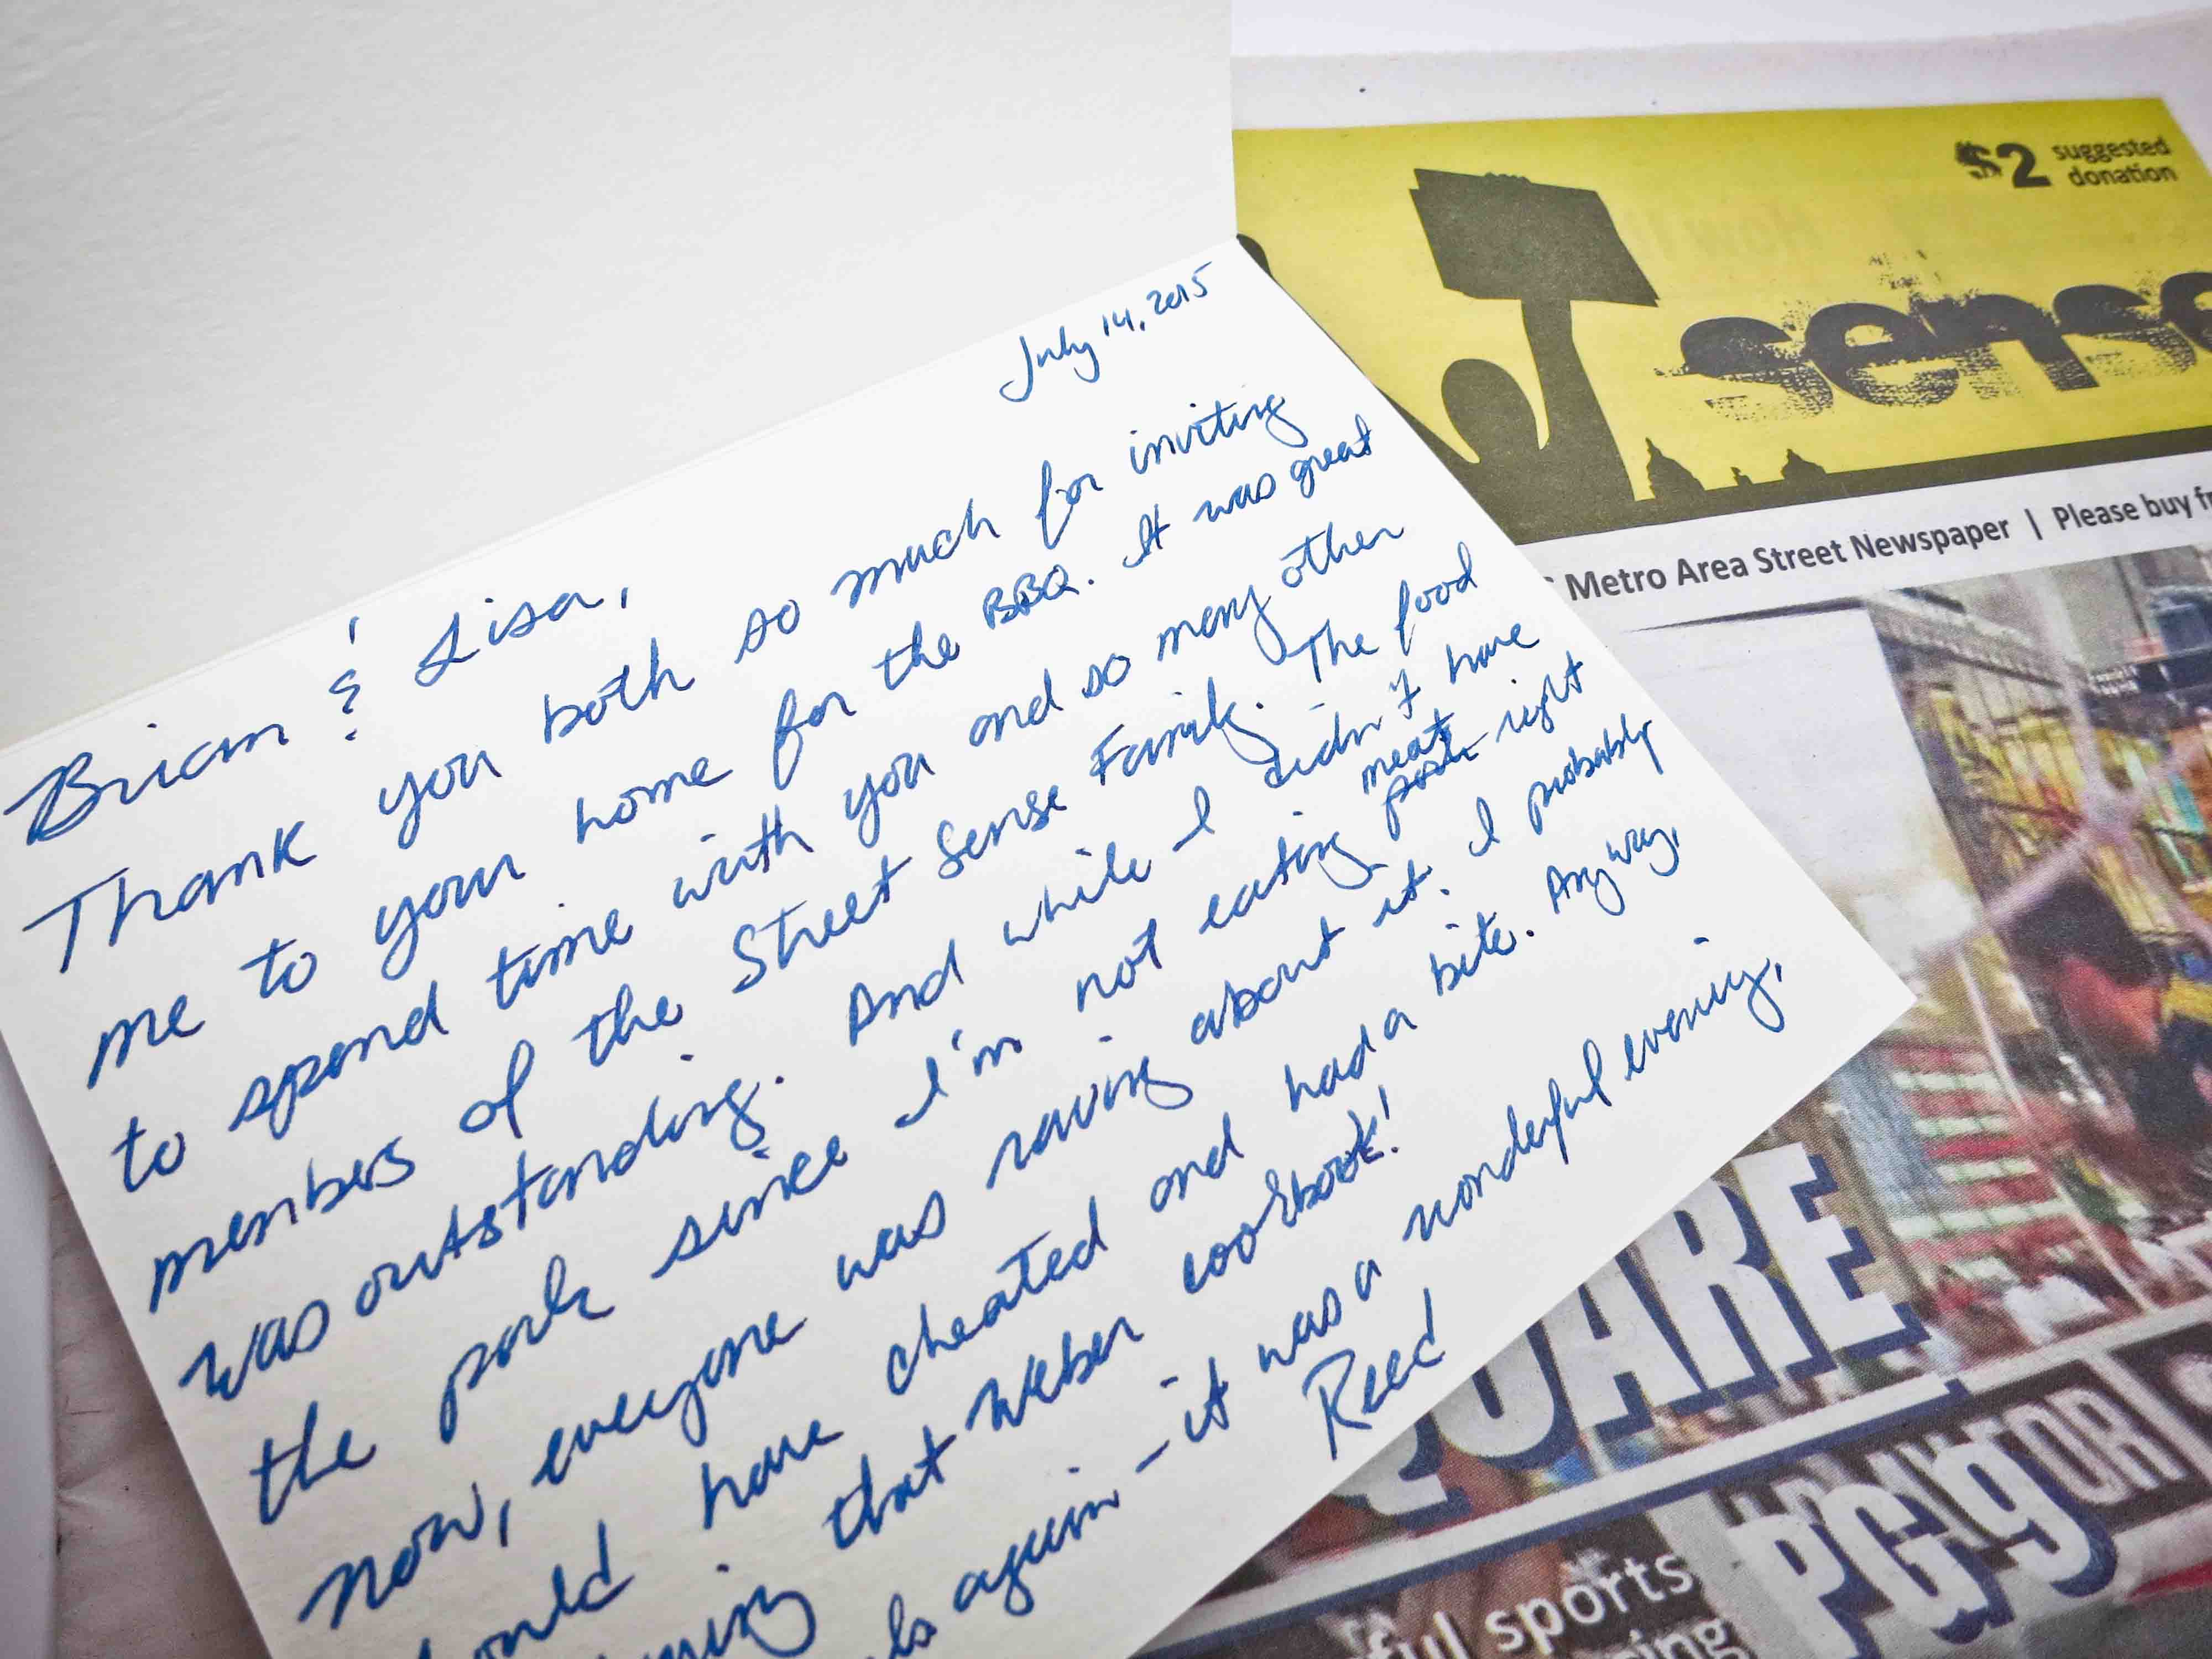 July 14, 2015
Brian & Lisa,
Thank you both so much for inviting
me to your home for the BBQ. It was great
to spend time with you and so many other
members of the Street Sense Family. The food
was outstanding. And while I didn't have
the pork since I'm not eating pork meat right
now, everyone was raving about it. I probably
have cheated and had a bite. Anyway,
that Weber cookbook!
again - it was a wonderful evening,
Reed
$2 suggested
donation
sense
Metro Area Street Newspaper | Please buy
QUARE
PG 9
sports